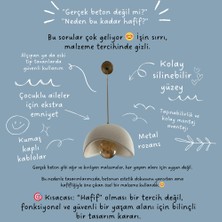 "Gerçek beton değil mi?"
"Neden bu kadar hafif?"
Bu sorular çok geliyor 😊 İşin sırrı,
malzeme tercihinde gizli.
Alçıpan ya da asma
tip tavanlarda
güvenli kullanım
Kolay
silinebilir
yüzey
Çocuklu aileler
için ekstra
emniyet
Taşınabilirlik
ve kolay
montaj
avantajı
Kumaş
kaplı
kablolar
Metal
rozans
Gerçek beton gibi ağır ve kırılgan malzemeler, her yaşam alanı için uygun değil.
Bu nedenle tasarımlarımızda, betonun estetik dokusunu yansıtan ama
hafifliğiyle öne çıkan özel bir malzeme kullandık
🎯 Kısacası: "Hafif" olması bir tercih değil,
fonksiyonel ve güvenli bir yaşam alanı için bilinçli
bir tasarım kararı.